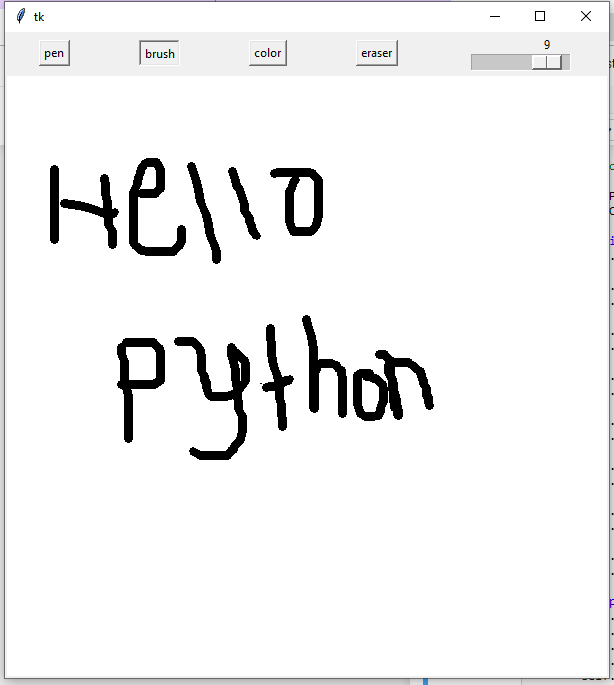 tk
pen brush color eraser 9
Hello
python